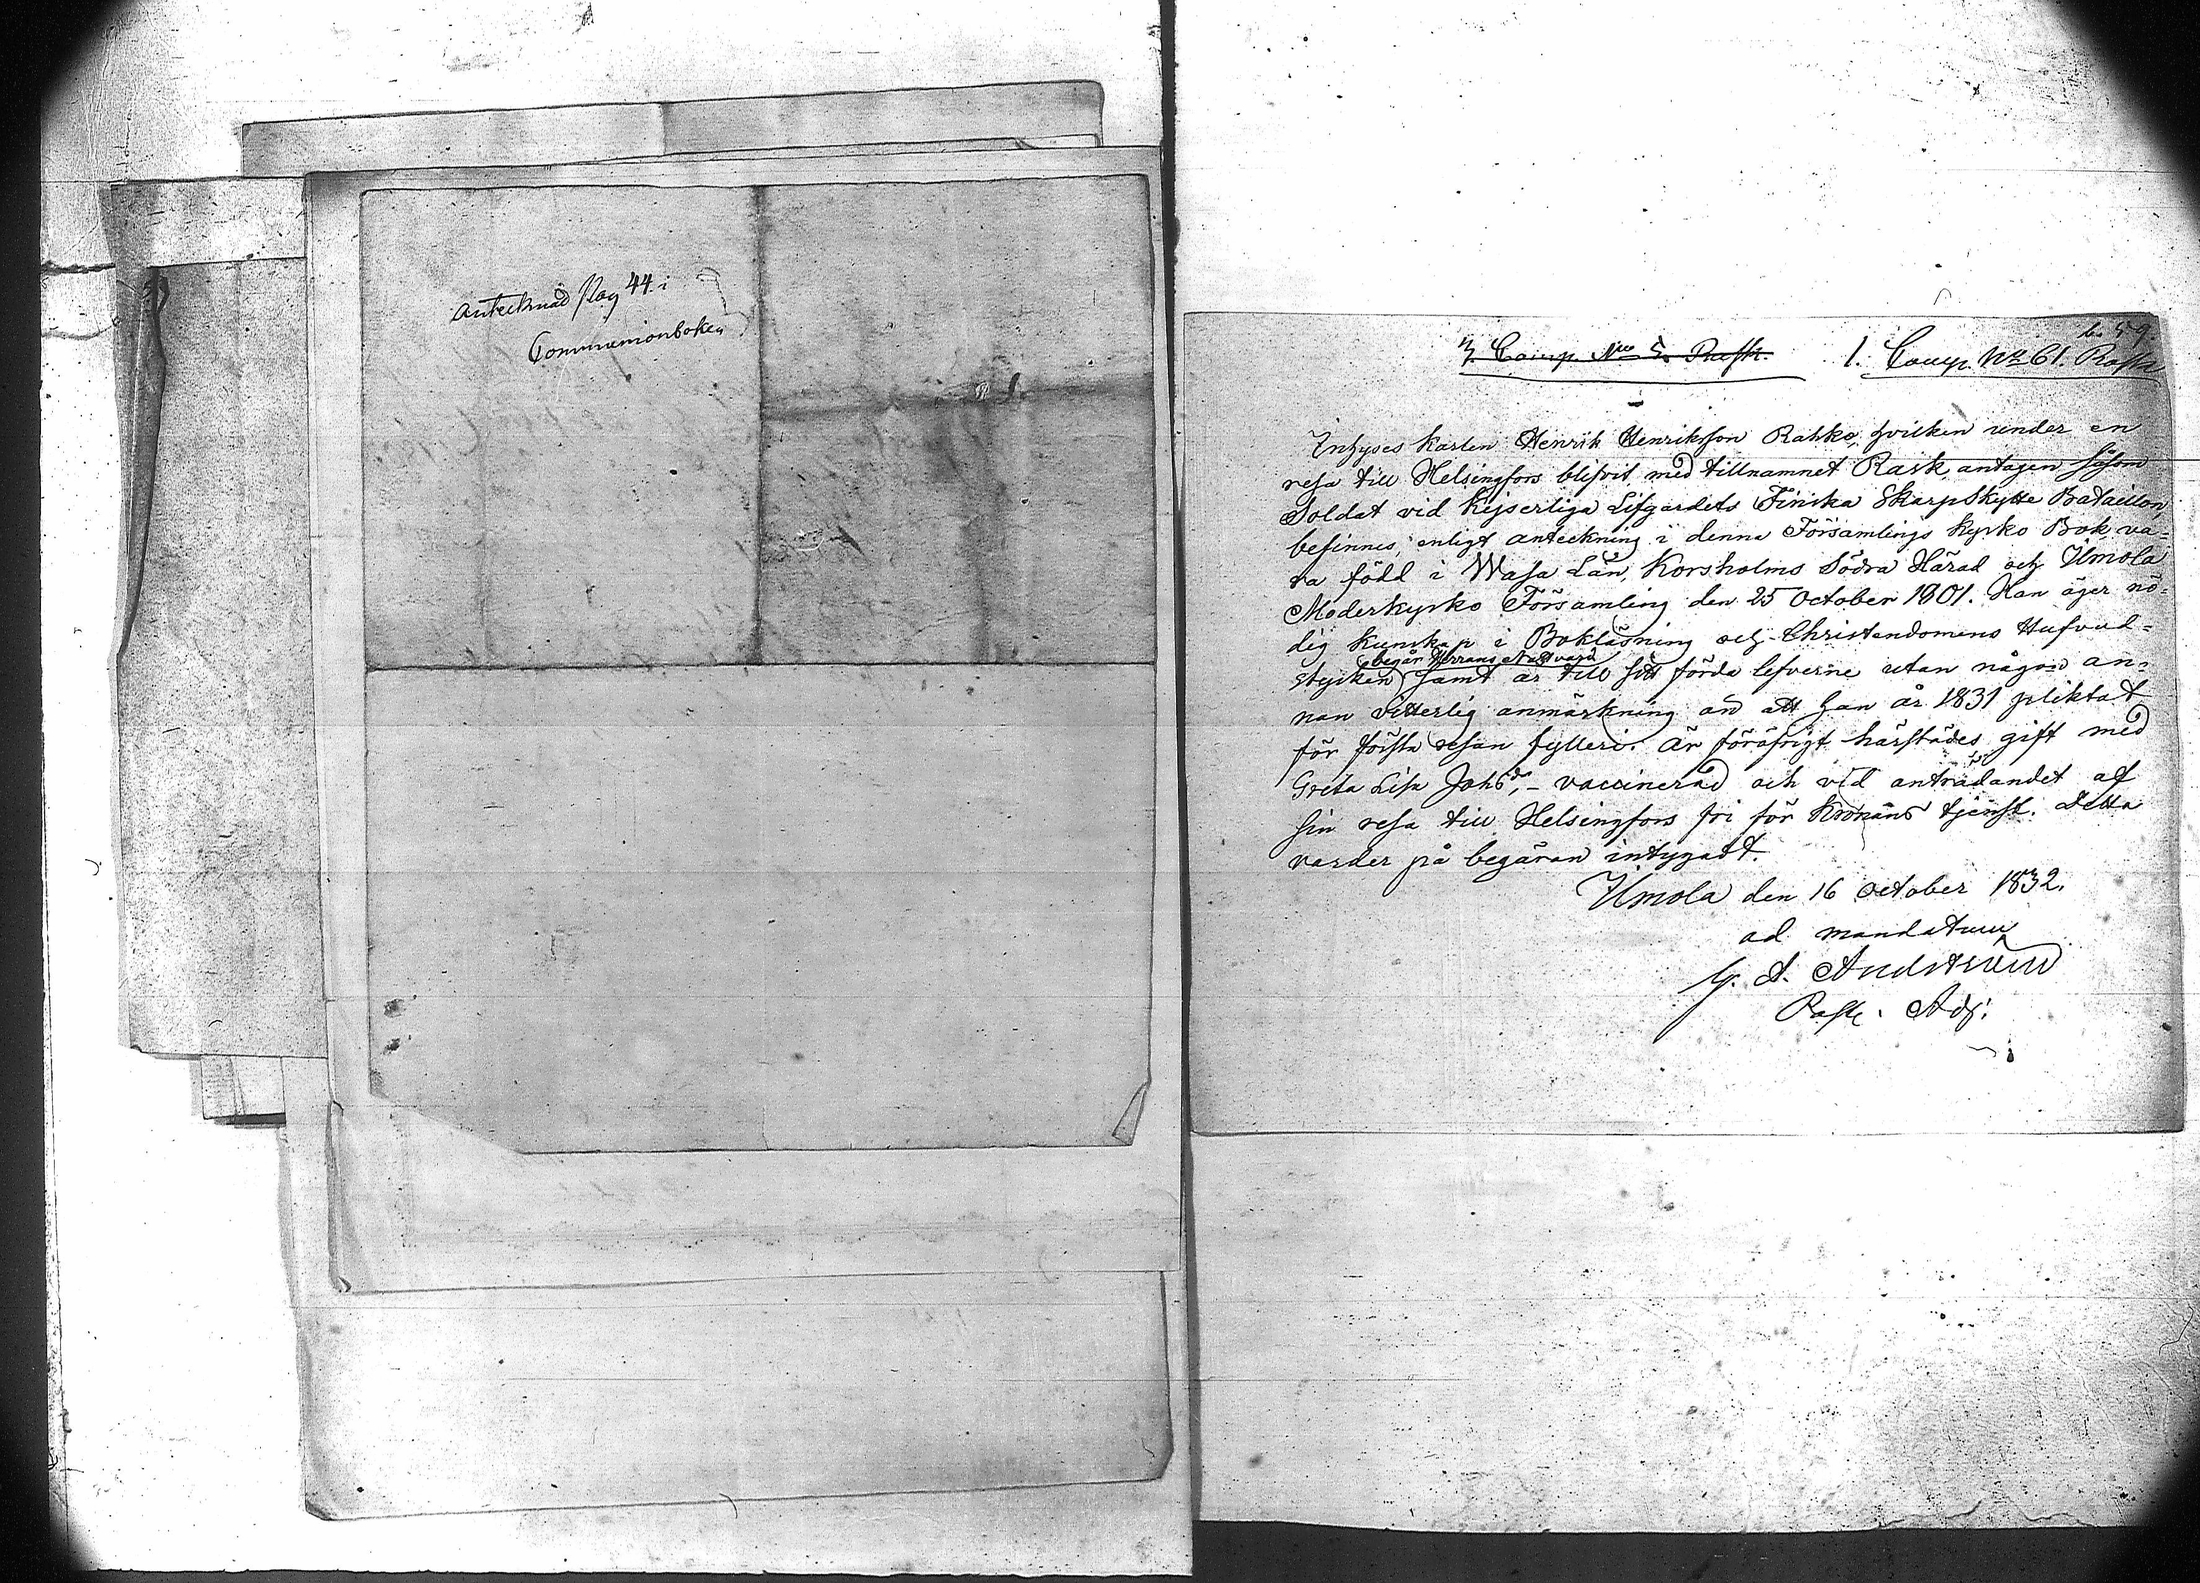 Antecknad Pag 44 i
Communionboken
b. 59.
3. Comp. No 5. Rask. 1. Comp. No 61. Rask
Inhyses Karlen Henrik Henriksson Rahko, hvilken under en
resa till Helsingfors blifvit med tillnamnet Rask, antagen såsom
Soldat vid Kejserliga Lifgardets Finska Skarpskytte Bataillon,
befinnes, enligt anteckning i denna Församlings Kyrko Bok, va=
ra född i Wasa Län, Korsholms Södra Härad och Ilmola
Moderkyrko Församling den 25 October 1801. Han äger nö=
dig kunskap i Bokläsning och Christendomens Hufvud=
begår Herrans Nattvard
stycken samt är till sitt förda lefverne utan någon an=
nan vitterlig anmärkning än att han år 1831 pliktat
för första resan fylleri. Är föröfrigt härstädes gift med
Greta Lisa Johsdr, - vaccinerad och vid anträdandet af
sin resa till Helsingfors fri för Kronans tjenst. Detta
varder på begäran intygadt.
Ilmola den 16 October 1832.
ad mandatum
A.
Past. Adj: